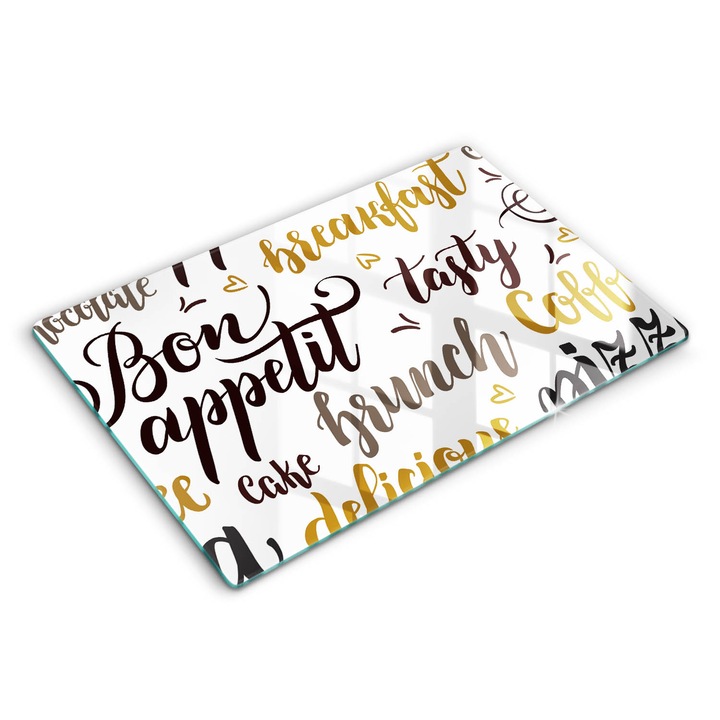 breakfast
chocolate
tasty
Bon
appetit
Coff
brunch
pizz
cake
delicious
ee
a